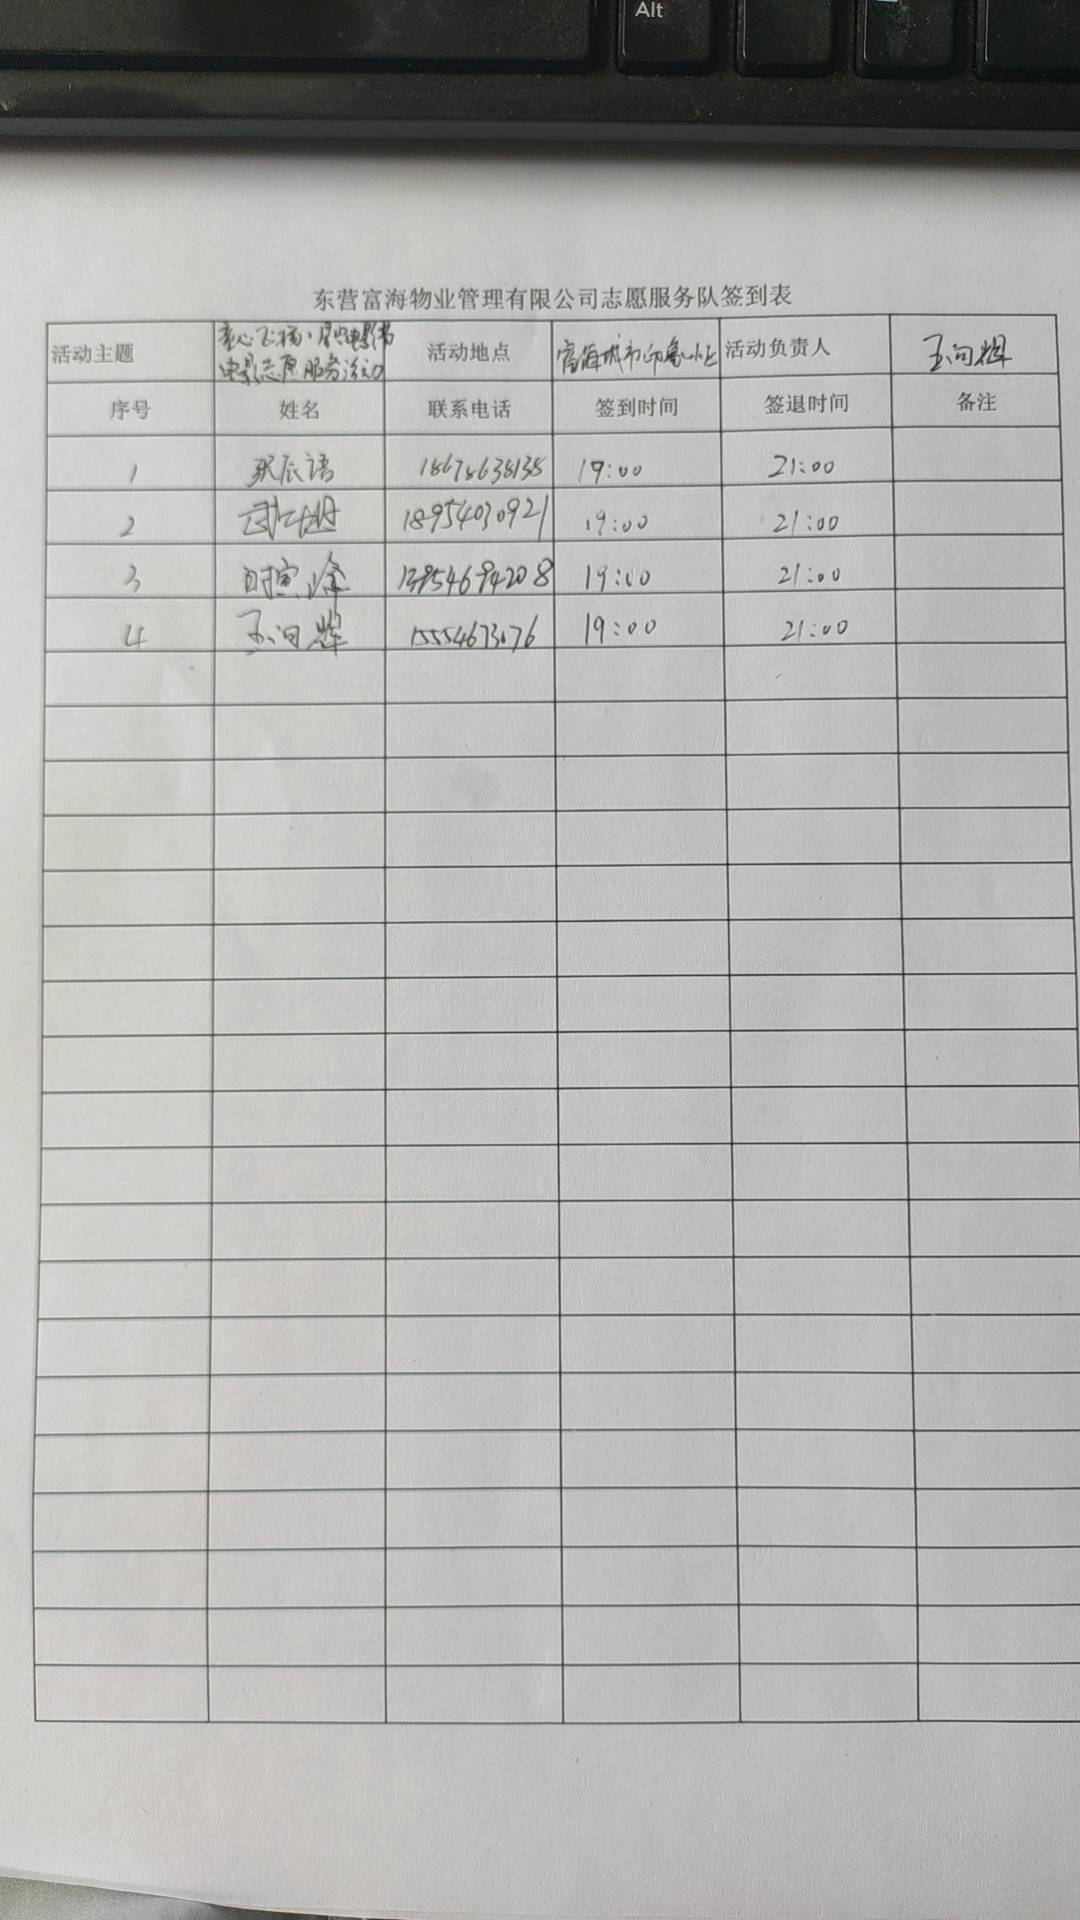 Alt
东营富海物业管理有限公司志愿服务队签到表
活动主题 童心飞扬·
电影志愿服务活动 活动地点 富海城市印象 活动负责人
序号 姓名 联系电话 签到时间 签退时间 备注
1 张辰语 19:00 21:00
2 18954030921 19:00 21:00
3 13954694208 19:00 21:00
4 15554673076 19:00 21:00